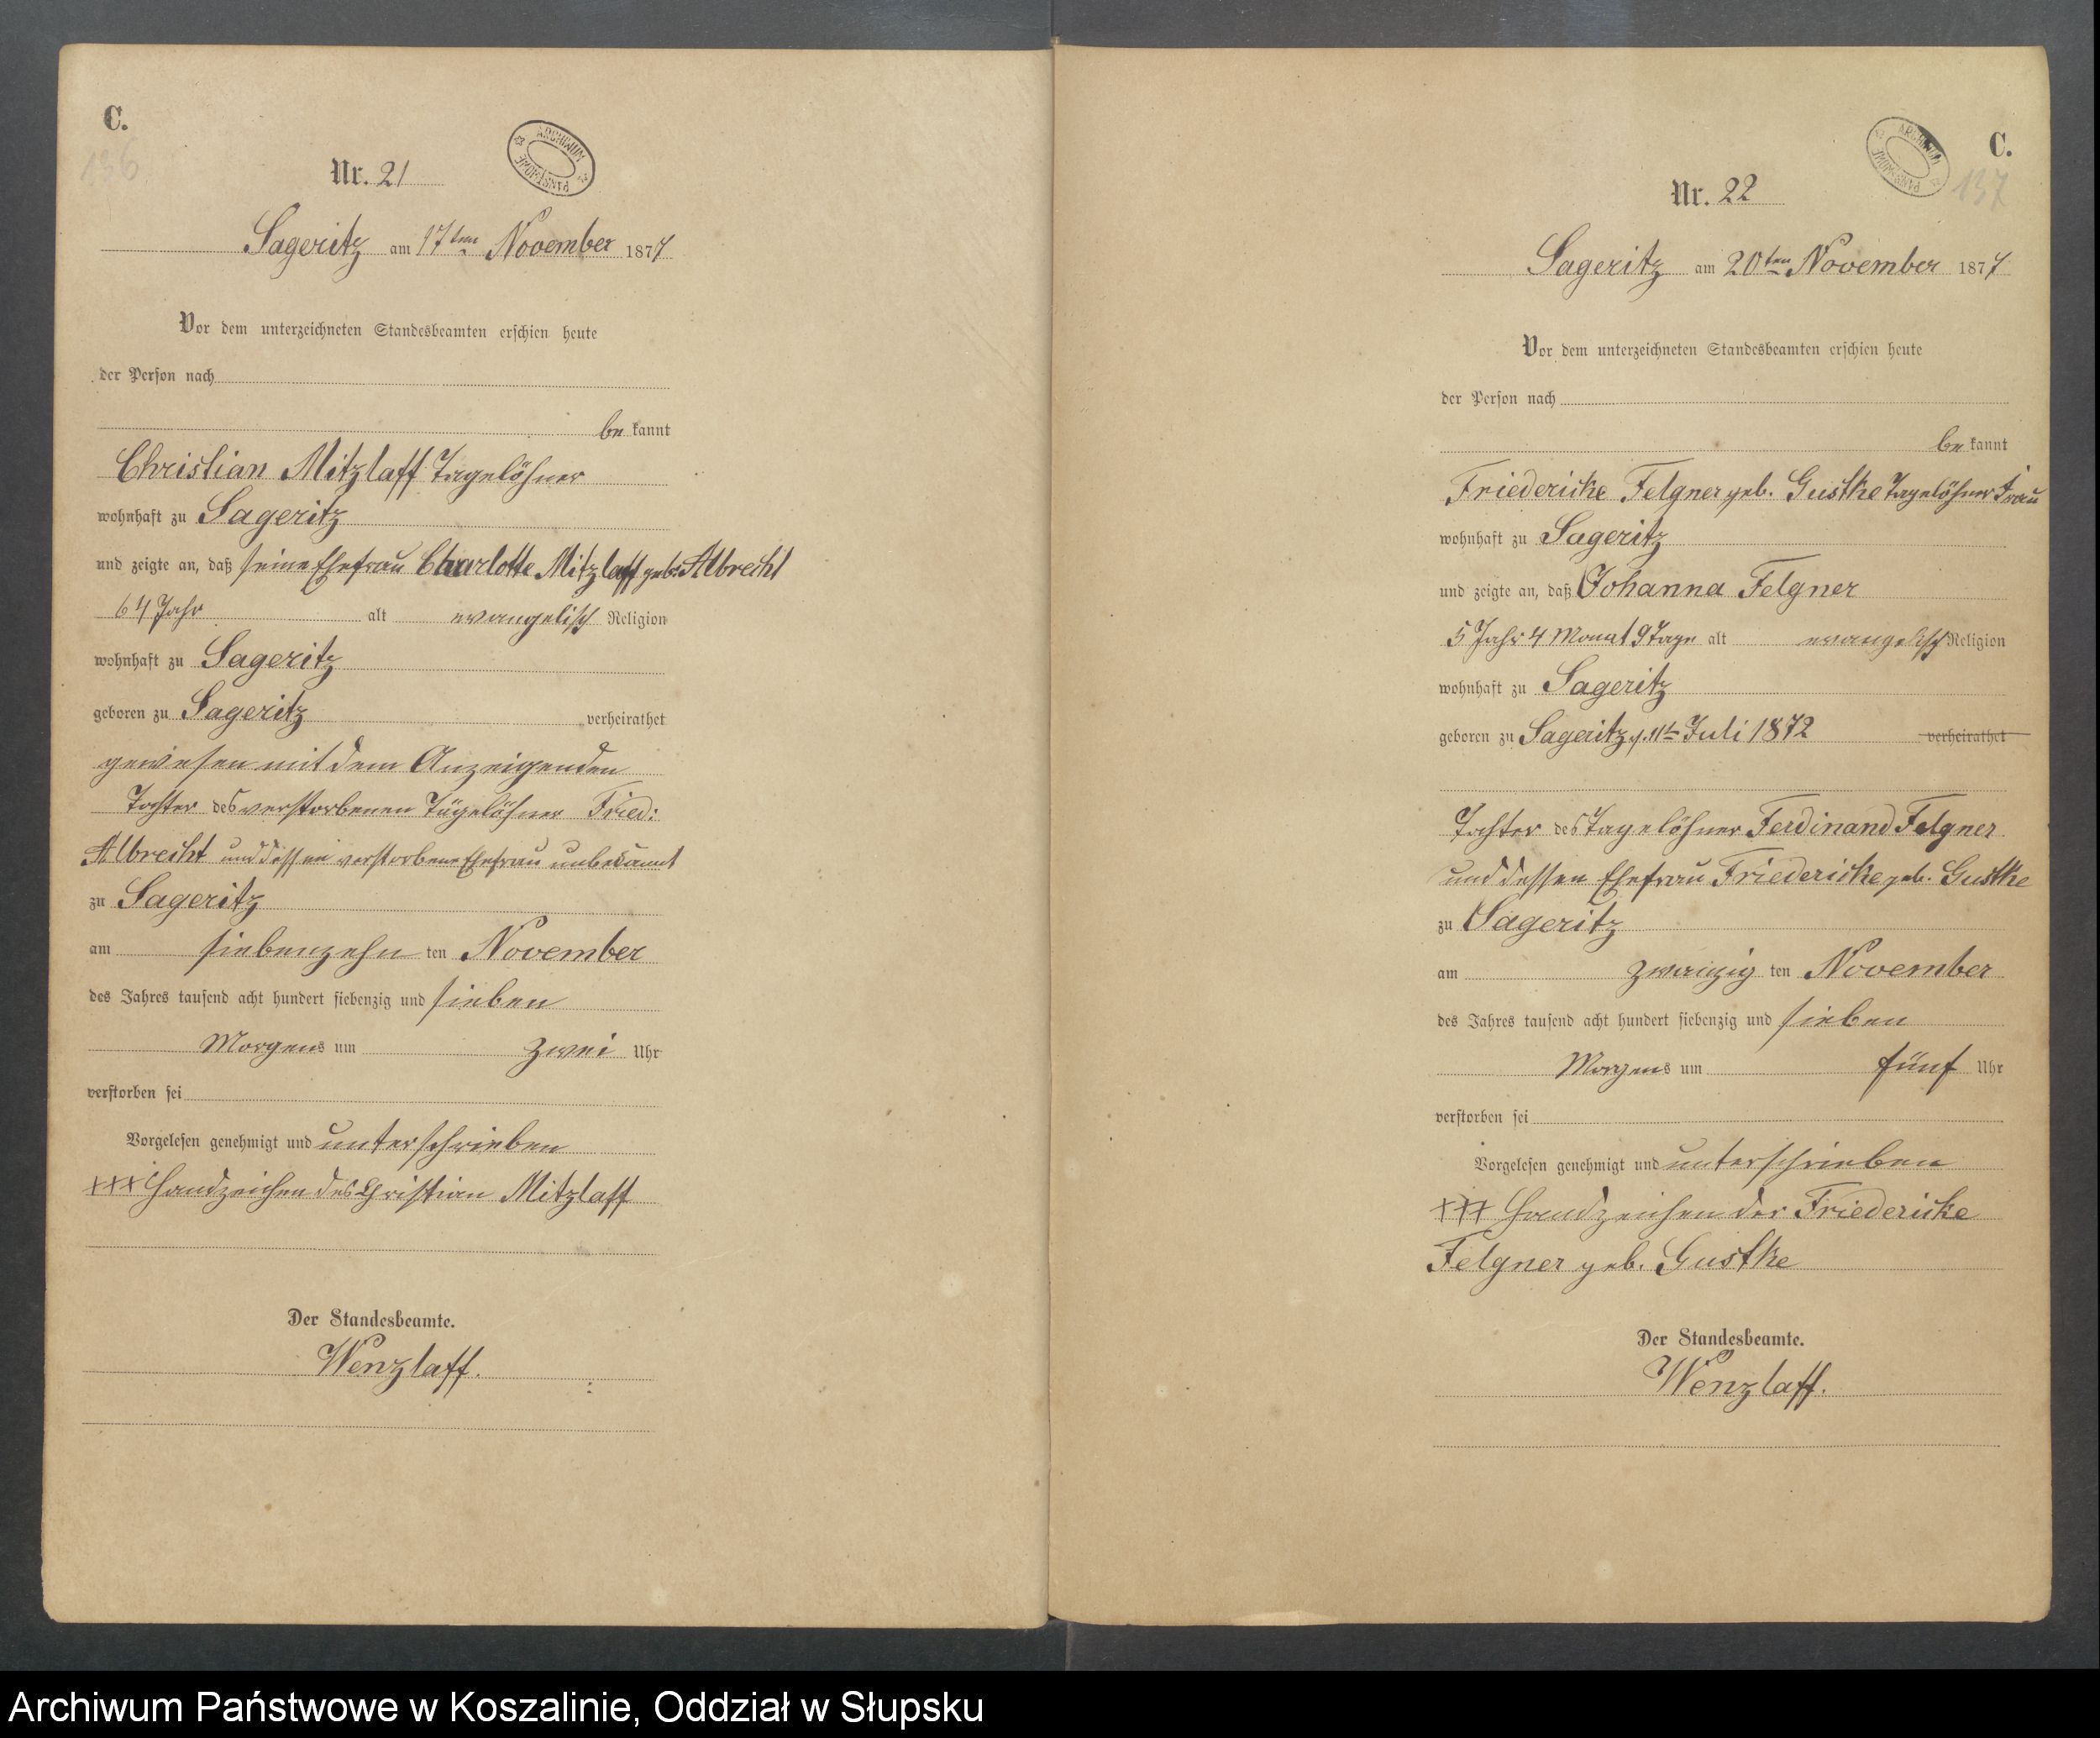 C.
136
Nr. 21
ARCHIWUM PAŃSTWOWE
Sageritz am 17ten November 1877
Vor dem unterzeichneten Standesbeamten erschien heute
der Person nach
bekannt
Christian Mitzlaff Tagelöhner
wohnhaft zu Sageritz
und zeigte an, daß seine Ehefrau Charlotte Mitzlaff geb. Albrecht
64 Jahr alt evangelisch Religion
wohnhaft zu Sageritz
geboren zu Sageritz verheirathet
gewesen mit dem Anzeigenden
Tochter des verstorbenen Tagelöhner Fried:
Albrecht und dessen verstorbene Ehefrau unbekannt
zu Sageritz
am siebenzehn ten November
des Jahres tausend acht hundert siebenzig und sieben
Morgens um zwei Uhr
verstorben sei
Vorgelesen genehmigt und unterschrieben
+++ Handzeichen des Christian Mitzlaff
Der Standesbeamte.
Wenzlaff.
C.
137
Nr. 22
ARCHIWUM PAŃSTWOWE
Sageritz am 20ten November 1877
Vor dem unterzeichneten Standesbeamten erschien heute
der Person nach
bekannt
Friedericke Felgner geb. Gustke Tagelöhner Frau
wohnhaft zu Sageritz
und zeigte an, daß Johanna Felgner
5 Jahr 4 Monat 9 Tage alt evangelisch Religion
wohnhaft zu Sageritz
geboren zu Sageritz d. 11te Juli 1872 verheirathet
Tochter des Tagelöhner Ferdinand Felgner
und dessen Ehefrau Friedericke geb. Gustke
zu Sageritz
am zwanzig ten November
des Jahres tausend acht hundert siebenzig und sieben
Morgens um fünf Uhr
verstorben sei
Vorgelesen genehmigt und unterschrieben
+++ Handzeichen der Friedericke
Felgner geb. Gustke
Der Standesbeamte.
Wenzlaff.
Archiwum Państwowe w Koszalinie, Oddział w Słupsku